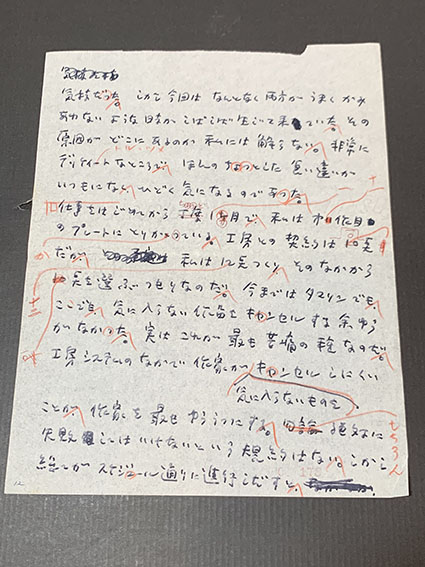 気楽だった。しかし今回はなんとなく両方がうまくかみ
あわないような日々がしばしば生じて来ていた。その
原因がどこにあるのか私には解らない。非常に
デリケートなところで、ほんのちょっとした食い違いが
いつもになくひどく気になるのであった。
仕事をはじめてから工房で、私は作目
のプレートにとりかかっている。工房との契約は10点
だが、私は12点つくり、そのなかから
10点を選ぶつもりなのだ。今まではタマリンでも、
ここでも、気に入らない作品をキャンセルする余ゆう
がなかった。実はこれが最も苦痛の種なのだ。
工房システムのなかで作家がキャンセルしにくい
気に入らないものを、
ことが作家を最もゆううつにする。絶対に
もちろん
失敗してはいけないという規約はない。しかし
総てがスケジュール通りに進行しだすと、
12